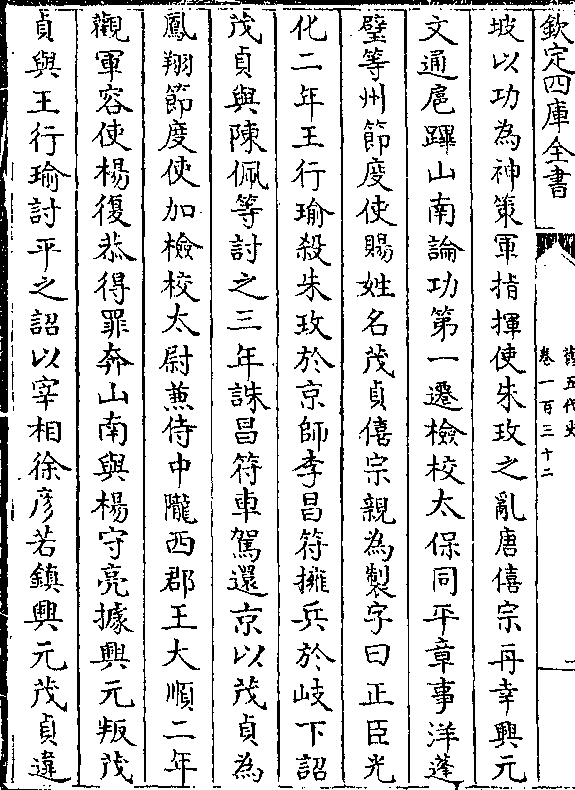 欽定四庫全書
舊五代史
卷一百三十二
二
坡以功為神策軍指揮使朱玫之亂唐僖宗再幸興元
文通扈蹕山南論功第一遷檢校太保同平章事洋蓬
璧等州節度使賜姓名茂貞僖宗親為製字曰正臣光
化二年王行瑜殺朱玫於京師李昌符擁兵於岐下詔
茂貞與陳佩等討之三年誅昌符車駕還京以茂貞為
鳳翔節度使加檢校太尉兼侍中隴西郡王大順二年
觀軍容使楊復恭得罪奔山南與楊守亮據興元叛茂
貞與王行瑜討平之詔以宰相徐彥若鎮興元茂貞違